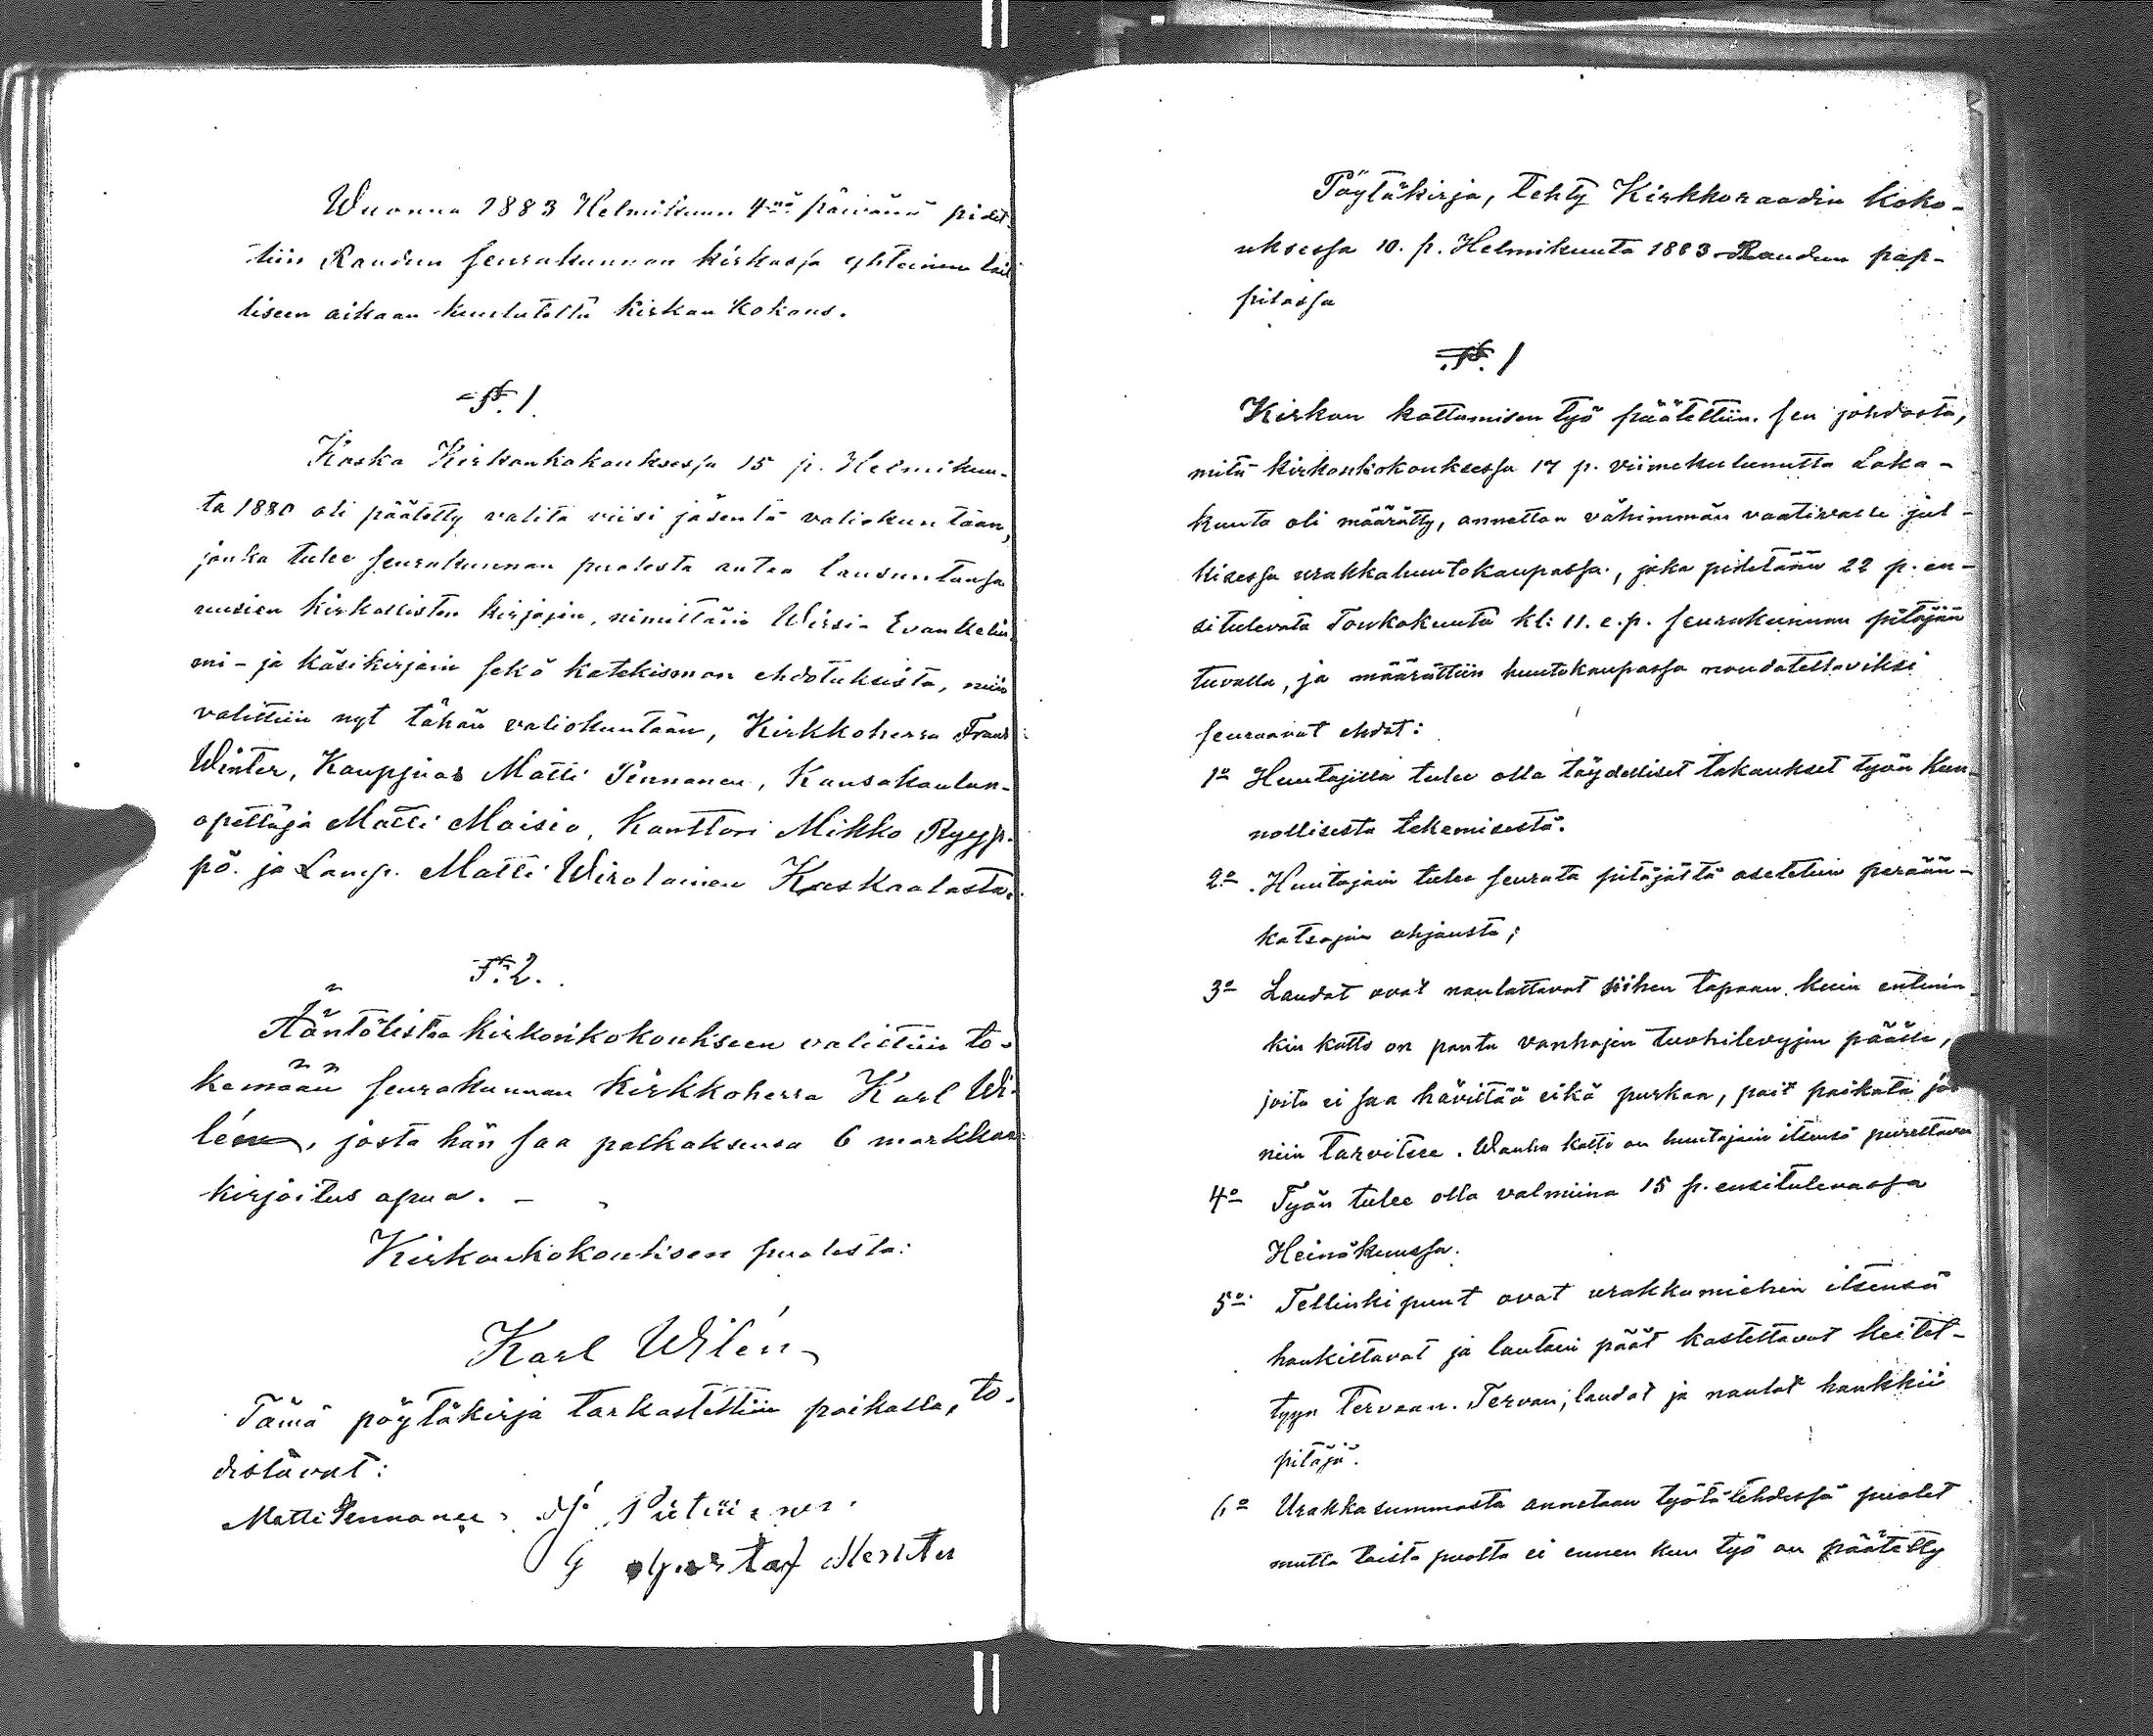 Wuonna 1883 Helmikuun 4nä päivänä pidet-
tiin Raudun seurakunnan kirkossa yhteinen lail
liseen aikaan kuulutettu kirkon kokous.
§. 1.
Koska Kirkonkokouksessa 15 p. Helmikuu-
ta 1880 oli päätetty valita viisi jäsentä valiokuntaan,
jonka tulee seurakunnan puolesta antaa lausuntansa
uusien kirkollisten kirjojen, nimittäin Wirsi- Evankeliu
mi- ja käsikirjain sekä katekismon ehdotuksista, niin
valittiin nyt tähän valiokuntaan, Kirkkoherra Frans
Winter, Kauppias Matti Pennanen, Kansakoulun-
opettaja Matti Moisio, Kanttori Mikko Ryyp-
pö. ja Lamp. Matti Wirolainen Kuskaalasta.
§. 2.
Ääntölistaa kirkonkokoukseen valittiin te-
kemään seurakunnan kirkkoherra Karl Wi-
lén, josta hän saa palkaksensa 6 markkaa
kirjoitus apua. -
Kirkonkokouksen puolesta:
Karl Wilén
Tämä pöytäkirja tarkastettiin paikalla, to-
distavat:
Matti Pennanen.
Pöytäkirja, tehty Kirkkoraadin koko-
uksessa 10. p. Helmikuuta 1883 Raudun pap-
pilassa
§. 1
Kirkon kattamisen työ päätettiin. sen johdosta,
mitä kirkonkokouksessa 17 p. viimekulunutta Loka-
kuuta oli määrätty, annettaa vähimmän vaativalle jul-
kisessa urakkahuutokaupassa, joka pidetään 22 p. en-
situlevata Toukokuuta kl: 11. e.p. seurakunnan pitäjän
tuvalla, ja määrättiin huutokaupassa noudatettaviksi
seuraavat ehdot:
1o Huutajilla tulee olla täydelliset takaukset työn kun-
nollisesta tekemisestä.
2o Huutajain tulee seurata pitäjältä asetetuin perään-
katsojain ohjausta;
3o Laudat ovat naulattavat siihen tapaan kuin entinen-
kin katto on pantu vanhojen tuohilevyjen päälle,
joita ei saa hävittää eikä purkaa, pait paikata jos
niin tarvitsee. Wanha katto on huutajain itsensä purettava
4o Työn tulee olla valmiina 15 p. ensitulevassa
Heinäkuussa.
5o Tellinkipuut ovat urakkamiehen itsensä
hankittavat ja lautain päät kastettavat keitet-
tyyn Tervaan. Tervan, laudat ja naulat hankkii
pitäjä.
6o Urakkasummasta annetaan työtä tehdessä puolet
mutta toista puolta ei ennen kun työ on päätetty